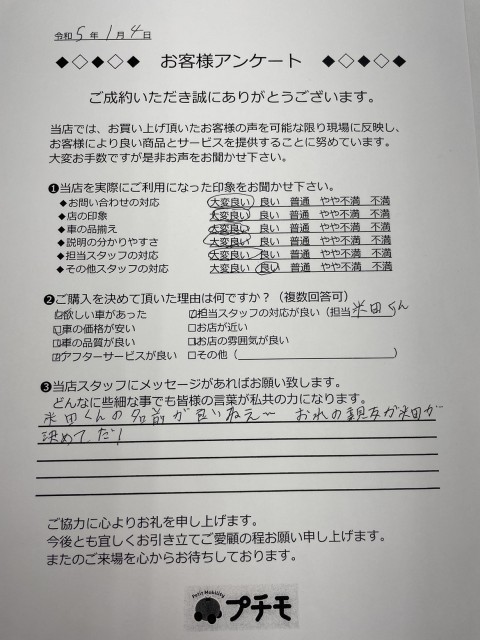 令和 5 年 1 月 4 日
◆◇◆◇◆ お客様アンケート ◆◇◆◇◆
ご成約いただき誠にありがとうございます。
当店では、お買い上げ頂いたお客様の声を可能な限り現場に反映し、
お客様により良い商品とサービスを提供することに努めています。
大変お手数ですが是非お声をお聞かせ下さい。
❶当店を実際にご利用になった印象をお聞かせ下さい。
◆お問い合わせの対応 大変良い 良い 普通 やや不満 不満
◆店の印象 大変良い 良い 普通 やや不満 不満
◆車の品揃え 大変良い 良い 普通 やや不満 不満
◆説明の分かりやすさ 大変良い 良い 普通 やや不満 不満
◆担当スタッフの対応 大変良い 良い 普通 やや不満 不満
◆その他スタッフの対応 大変良い 良い 普通 やや不満 不満
❷ご購入を決めて頂いた理由は何ですか?(複数回答可)
☑欲しい車があった ☑担当スタッフの対応が良い(担当 米田くん
☑車の価格が安い □お店が近い
□車の品質が良い □お店の雰囲気が良い
☑アフターサービスが良い □その他( )
❸当店スタッフにメッセージがあればお願い致します。
どんなに些細な事でも皆様の言葉が私共の力になります。
米田くんの名前が良いねえ〜 おれの親友が米田が
決めてだ!
ご協力に心よりお礼を申し上げます。
今後とも宜しくお引き立てご愛顧の程お願い申し上げます。
またのご来場を心からお待ちしております。
Petit Mobility
プチモ